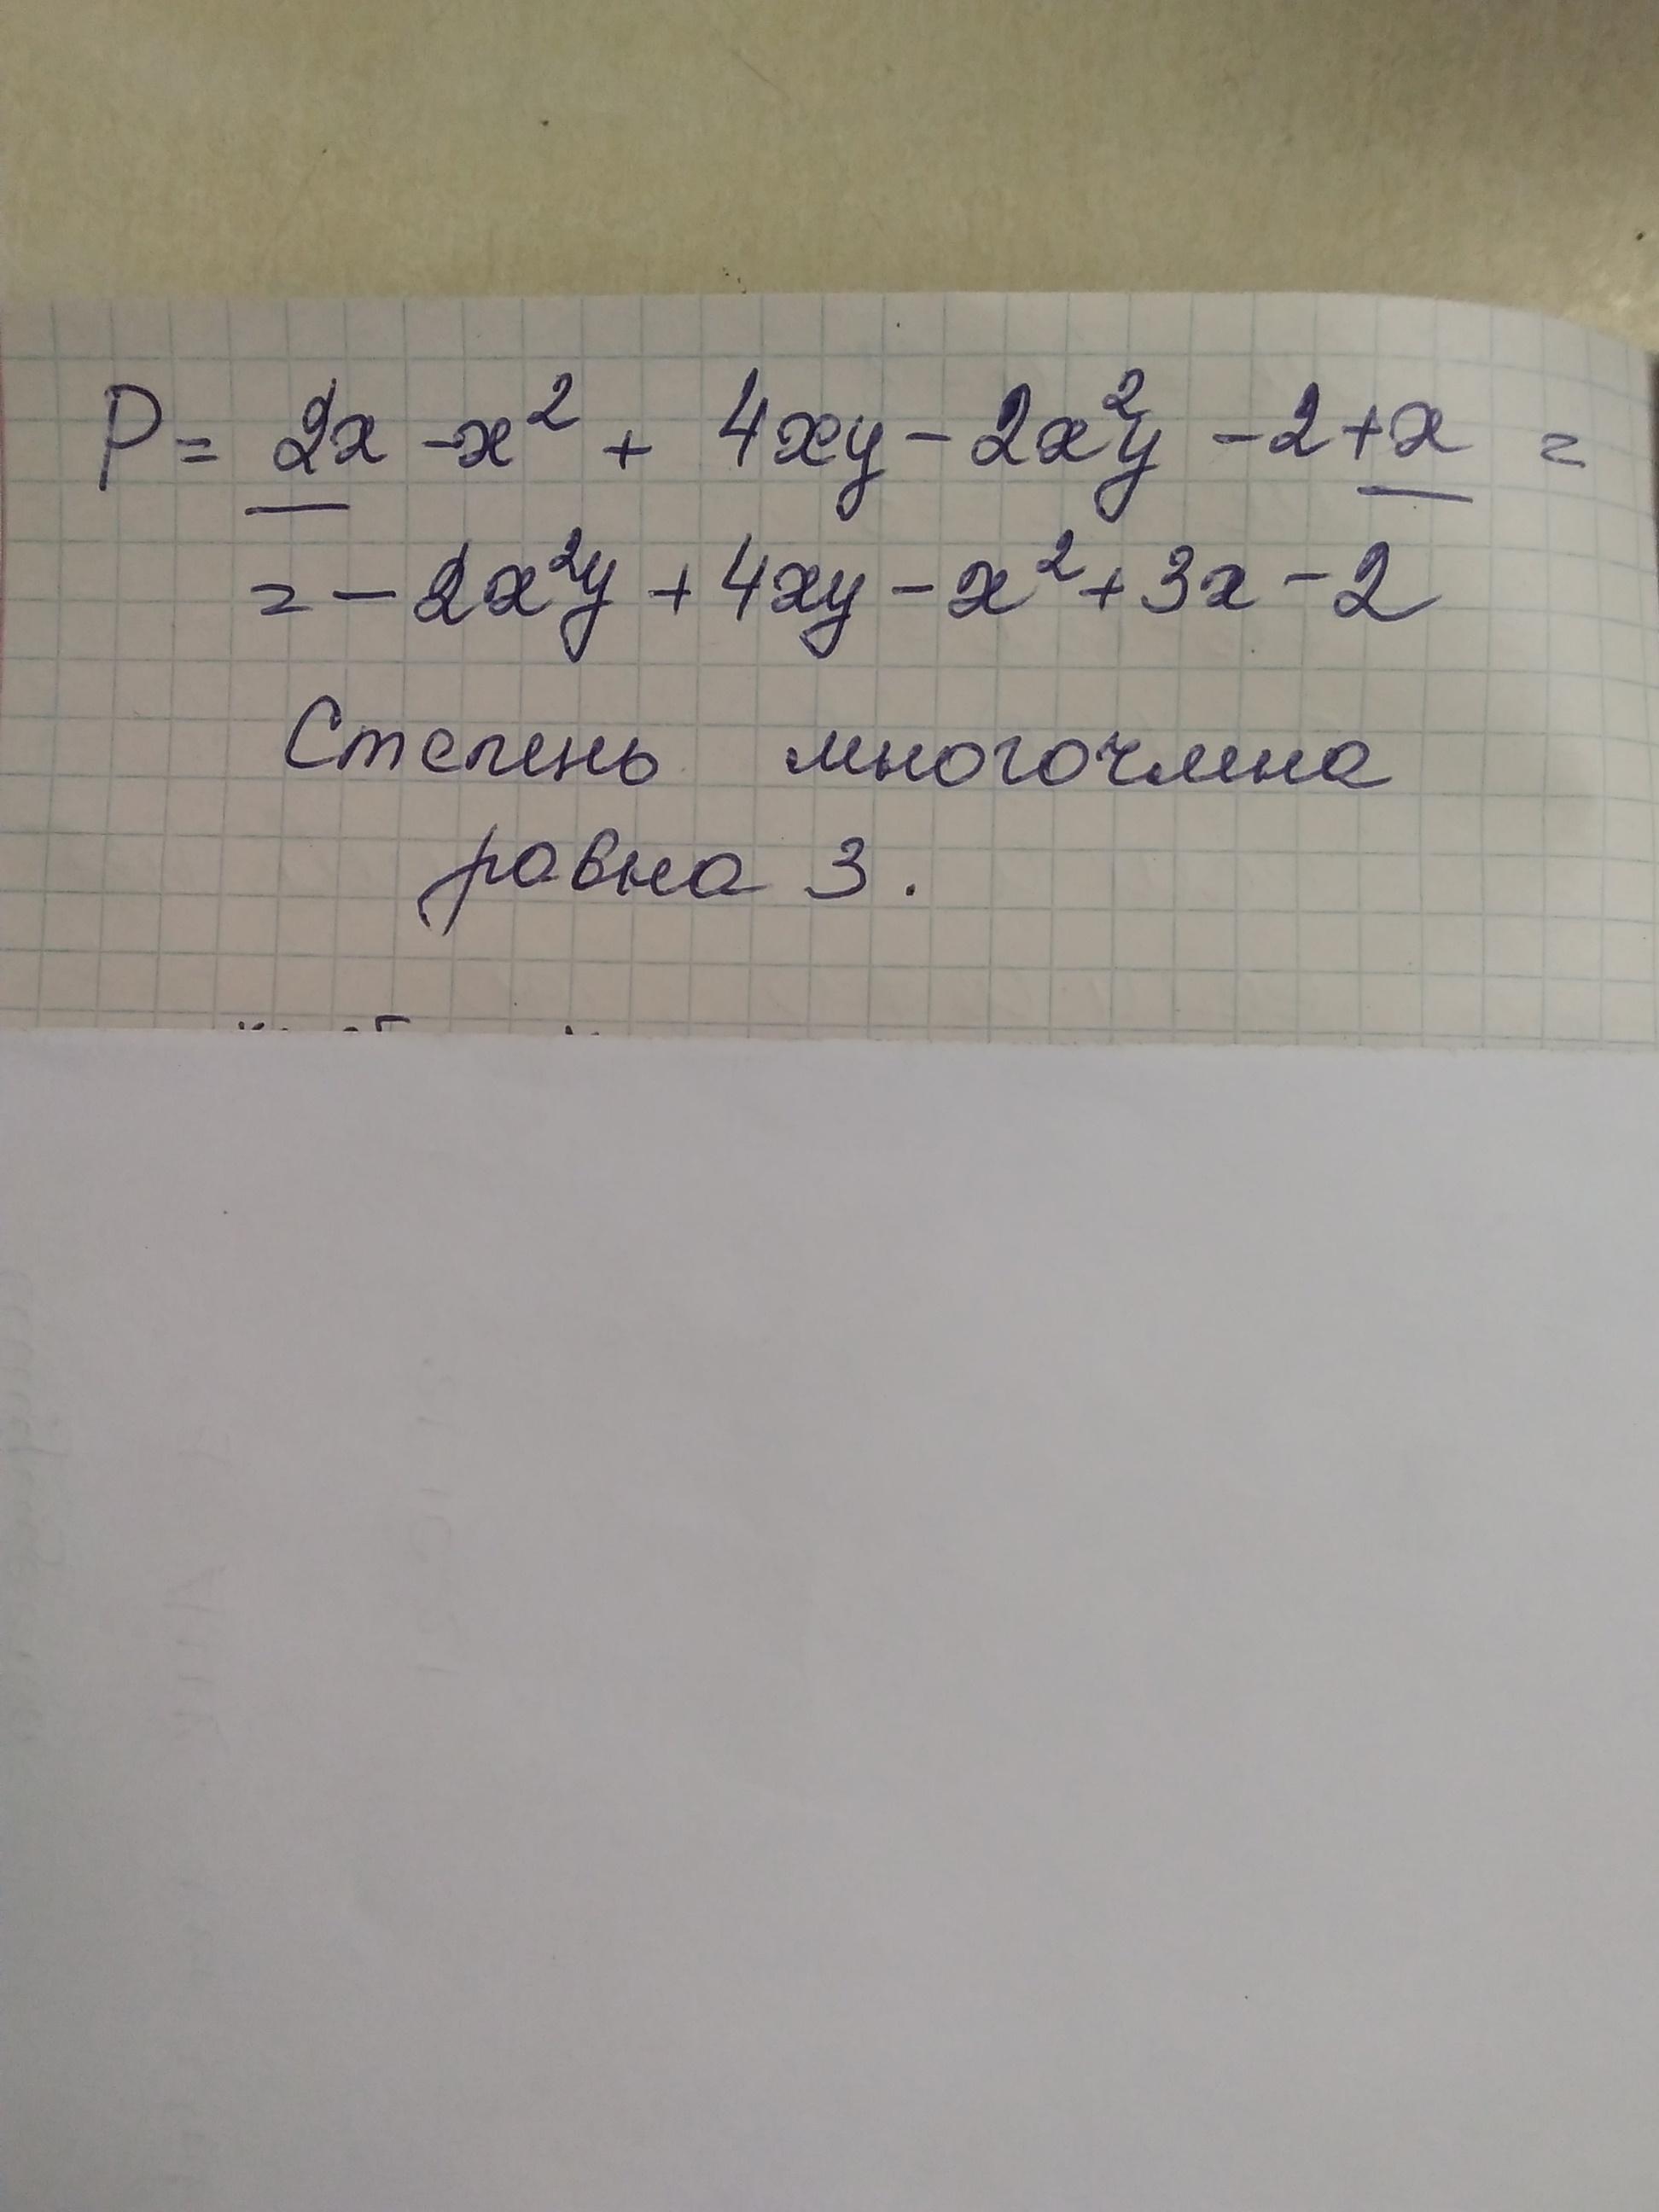 P = 2x - x² + 4xy - 2x²y - 2 + x =
= - 2x²y + 4xy - x² + 3x - 2
Степень многочлена
равна 3.